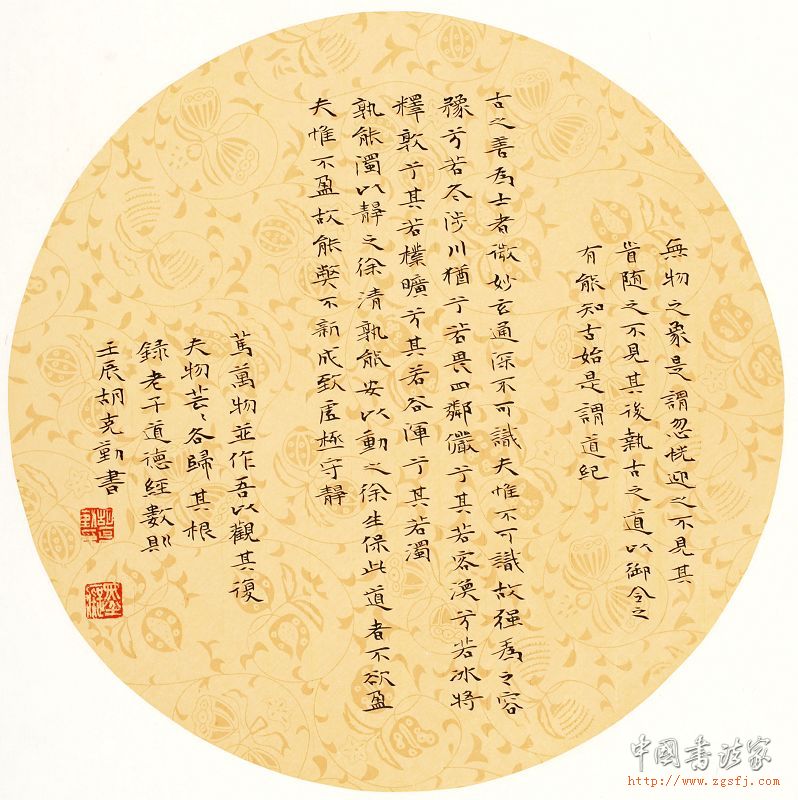 無物之象是謂忽恍迎之不見其
首随之不見其後執古之道以御今之
有能知古始是謂道紀
古之善為士者微妙玄通深不可識夫惟不可識故强為之容
豫兮若冬涉川猶兮若畏四鄰儼兮其若容渙兮若冰將
釋敦兮其若樸曠兮其若谷渾兮其若濁
孰能濁以靜之徐清孰能安以動之徐生保此道者不欲盈
夫惟不盈故能獘不新成致虛極守靜
篤萬物並作吾以觀其復
夫物芸〻各歸其根
錄老子道德經數則
壬辰胡克勤書
中國書法家
http://www.zgsfj.com